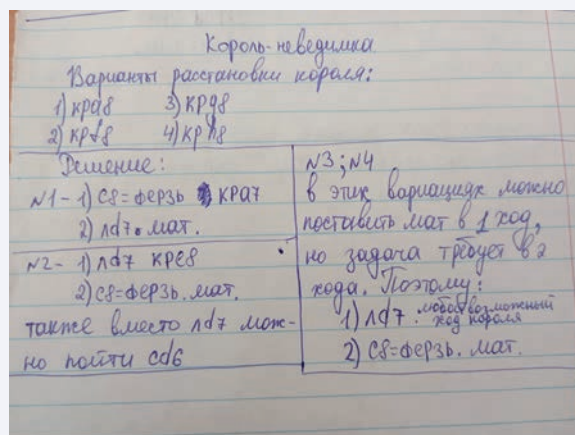 Король-неведимка
Варианты расстановки короля:
1) кра8 3) крg8
2) крf8 4) крh8
Решение:
N1 - 1) C8=ферзь кра7
2) лd7. мат.
N2 - 1) лd7 кре8
2) C8=ферзь. мат.
также вместо лd7 мож-
но пойти сd6
N3; N4
в этих вариациях можно
поставить мат в 1 ход,
но задача требует в 2
хода. Поэтому:
1) лd7. любой возможный
ход короля
2) C8=ферзь. мат.